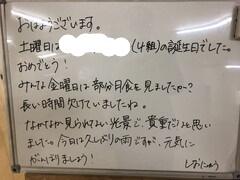 おはようございます。
土曜日は (4組)の誕生日でした。
おめでとう！
みんな金曜日は部分月食を見ましたかー？
長い時間欠けていましたね。
なかなか見られない光景で、貴重だなと思い
ました。今日は久しぶりの雨ですが、元気に
がんばりましょう！